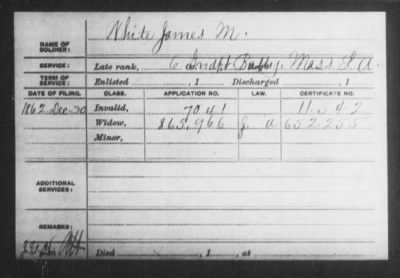 White James M.
NAME OF SOLDIER:
SERVICE: Late rank, 6 Indpt Batty. Mass L. A.
TERM OF SERVICE: Enlisted , 1 Discharged , 1
DATE OF FILING. CLASS. APPLICATION NO. LAW. CERTIFICATE NO.
1862 Dec. 30 Invalid, 7041 11.342
Widow, 865.966 J. a 652.255
Minor,
ADDITIONAL SERVICES:
REMARKS:
Died , 1 , at